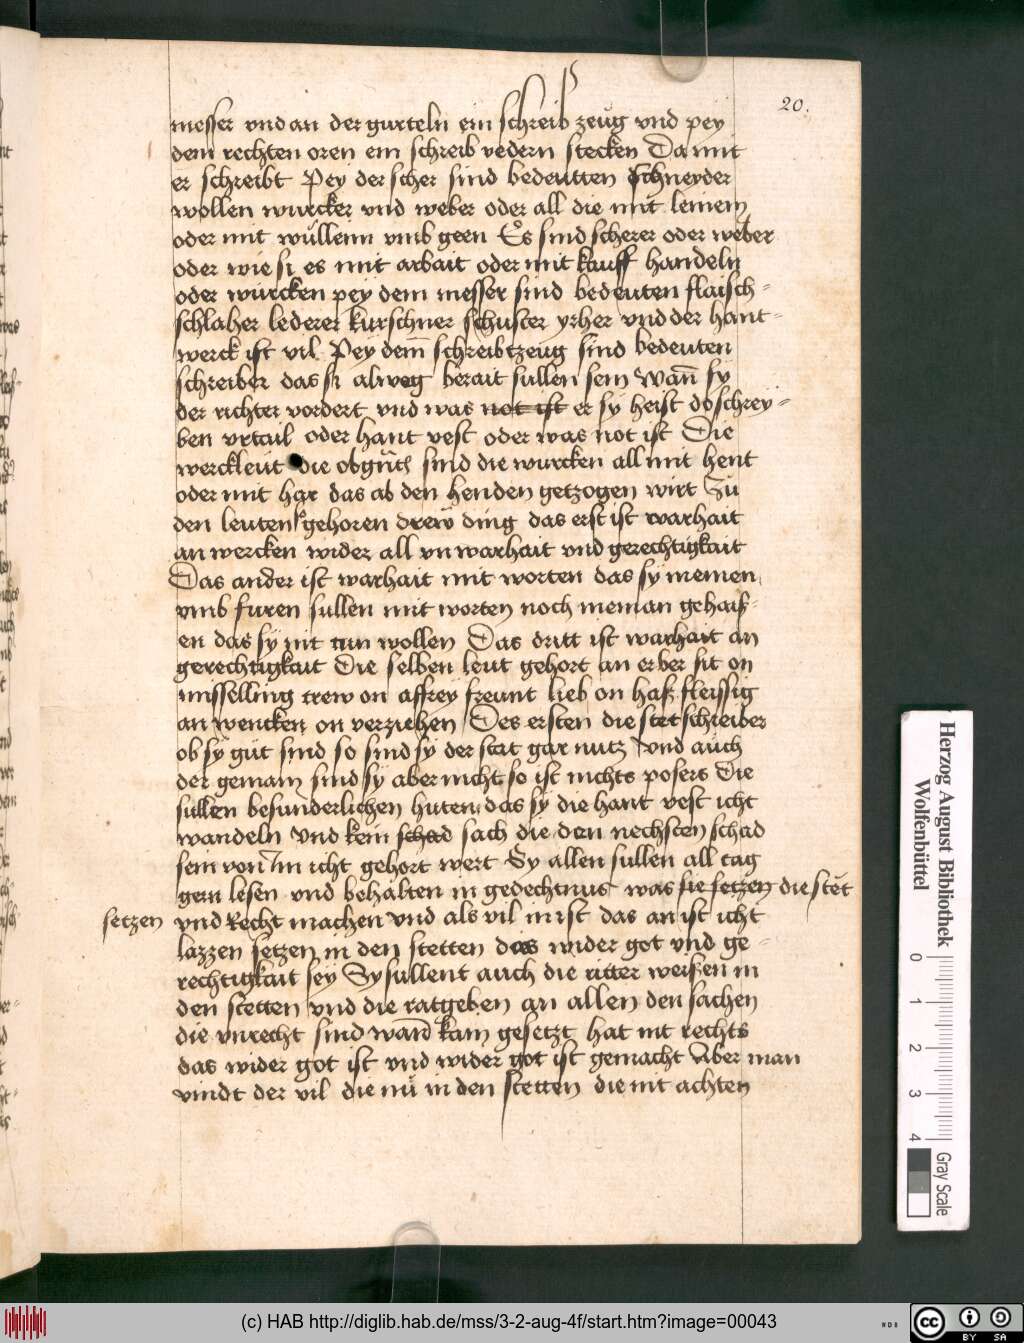 20.
messer vnd an der gurteln ein schreib zeug vnd pey
dem rechten oren ein schreib vedern stecken Da mit
er schreibt Pey der scher sind bedeutten schneyder
wollen wurcker vnd weber oder all die mit leinem
oder mit wullenn vmb geen Es sind scherer oder weber
oder wie si es mit arbait oder mit kauff handeln
oder wurcken pey dem messer sind bedeuten flaisch-
schlaher lederer kurschner schuster yrher vnd der hant-
werck ist vil Pey dem̄ schreibtzeug sind bedeuten
schreiber das si alweg berait sullen sein Wan̄ sy
der richter vordert vnd was not ist er sy heist do schrey-
ben vrtail oder hant vest oder was not ist Die
werckleut die obgnt̄ sind die wurcken all mit hent
oder mit har das ab den henden getzogen wirt Zu
den leuten gehoren drew ding das erst ist warhait
an wercken wider all vn warhait vnd gerechtigkait
Das ander ist warhait mit worten das sy niemen
vmb furen sullen mit worten noch nieman gehaiß-
en das sy nit tun wollen Das dritt ist warhait an
gerechtigkait Die selben leut gehort an erber sit on
misselling trew on affrey freunt lieb on haß fleissig
an wercken on verziehen Des ersten die stetschreiber
ob sy gut sind so sind sy der stat gar nutz vnd auch
der gemain sind sy aber nicht so ist nichts posers Die
sullen besunderlichen huten das sy die hant vest icht
wandeln Vnd kein schad sach die den nechsten schad
sein von im icht gehort wert Sy allen sullen all tag
gern lesen vnd behalten in gedechtnus was sie setzen die stet
setzen vnd Recht machen vnd als vil in ist das an ist icht
lazzen setzen in den stetten das wider got vnd ge-
rechtigkait sey Sy sullent auch die ritter weißen in
den stetten vnd die ratgeben an allen den sachen
die vnrecht sind wand kain gesetzt hat nit rechts
das wider got ist vnd wider got ist gemacht Aber man
vindt der vil die nu in den stetten die nit achten
Herzog August Bibliothek
Wolfenbüttel
0 1 2 3 4
Gray Scale
(c) HAB http://diglib.hab.de/mss/3-2-aug-4f/start.htm?image=00043
WDB
cc BY SA